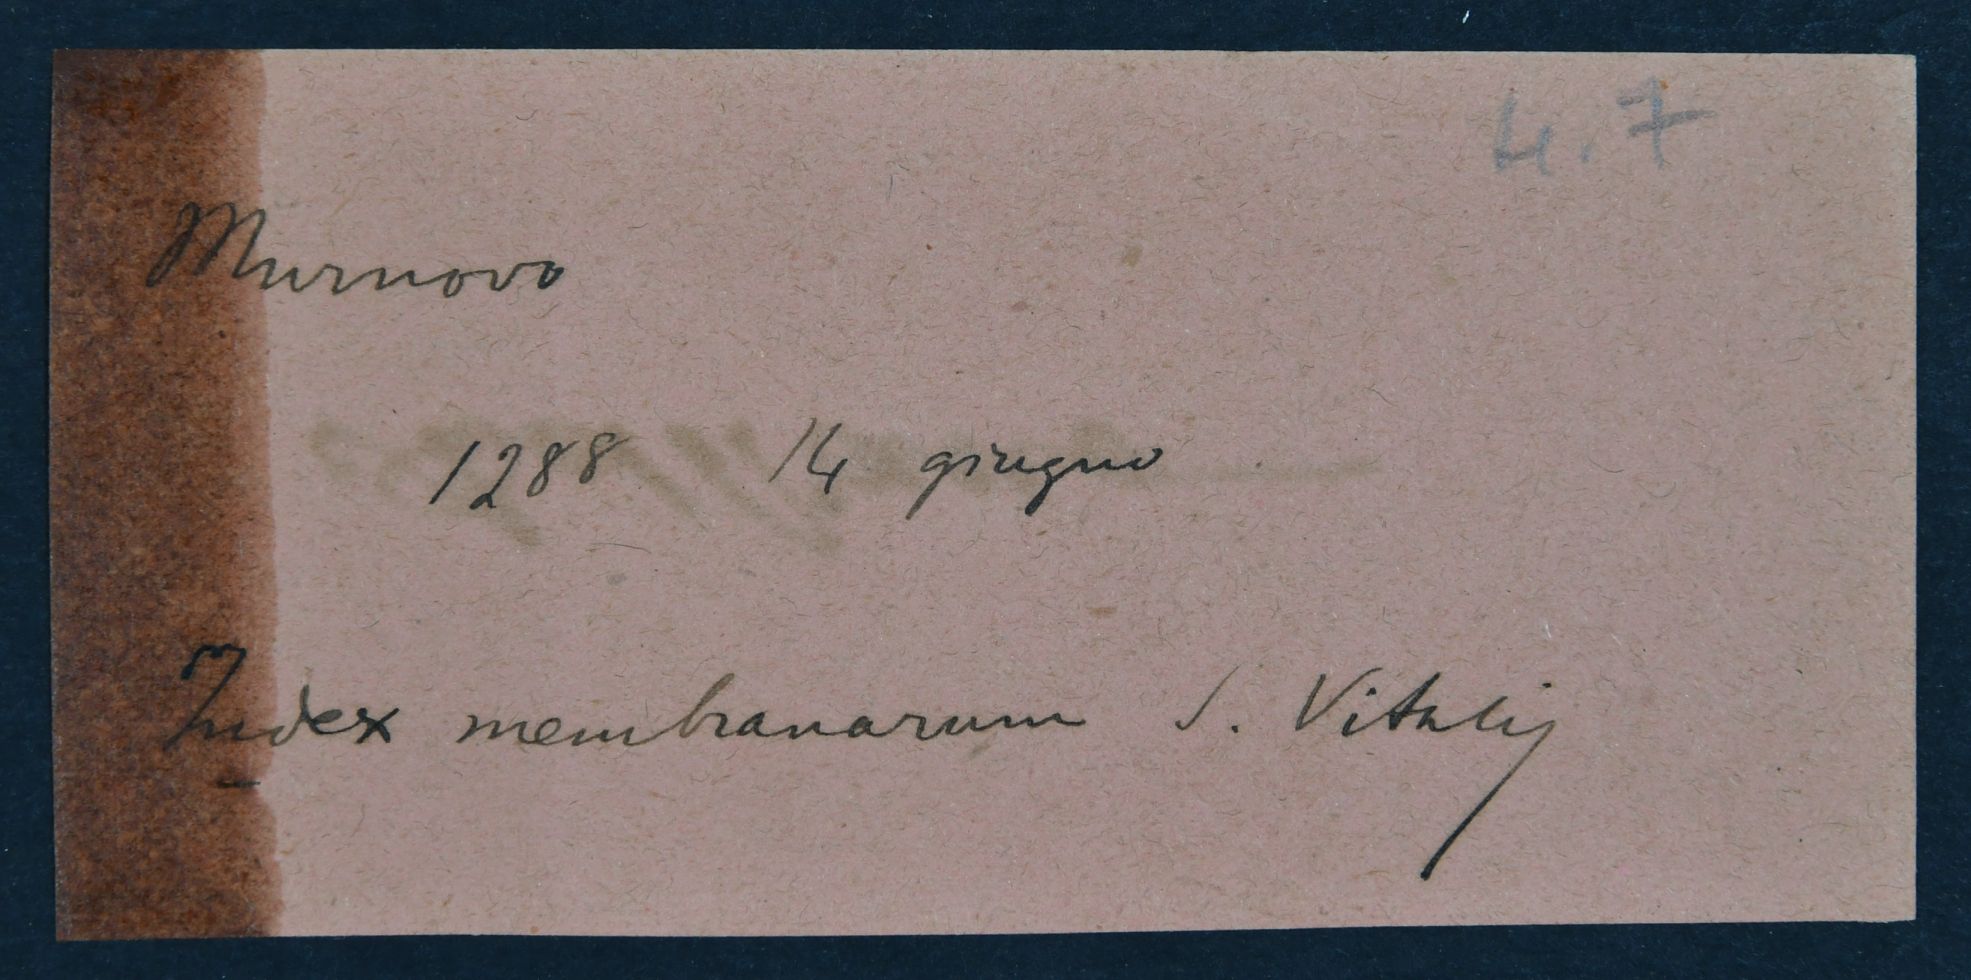 4.7
Murnovo
1288 14 giugno
Index membranarum S. Vitalis